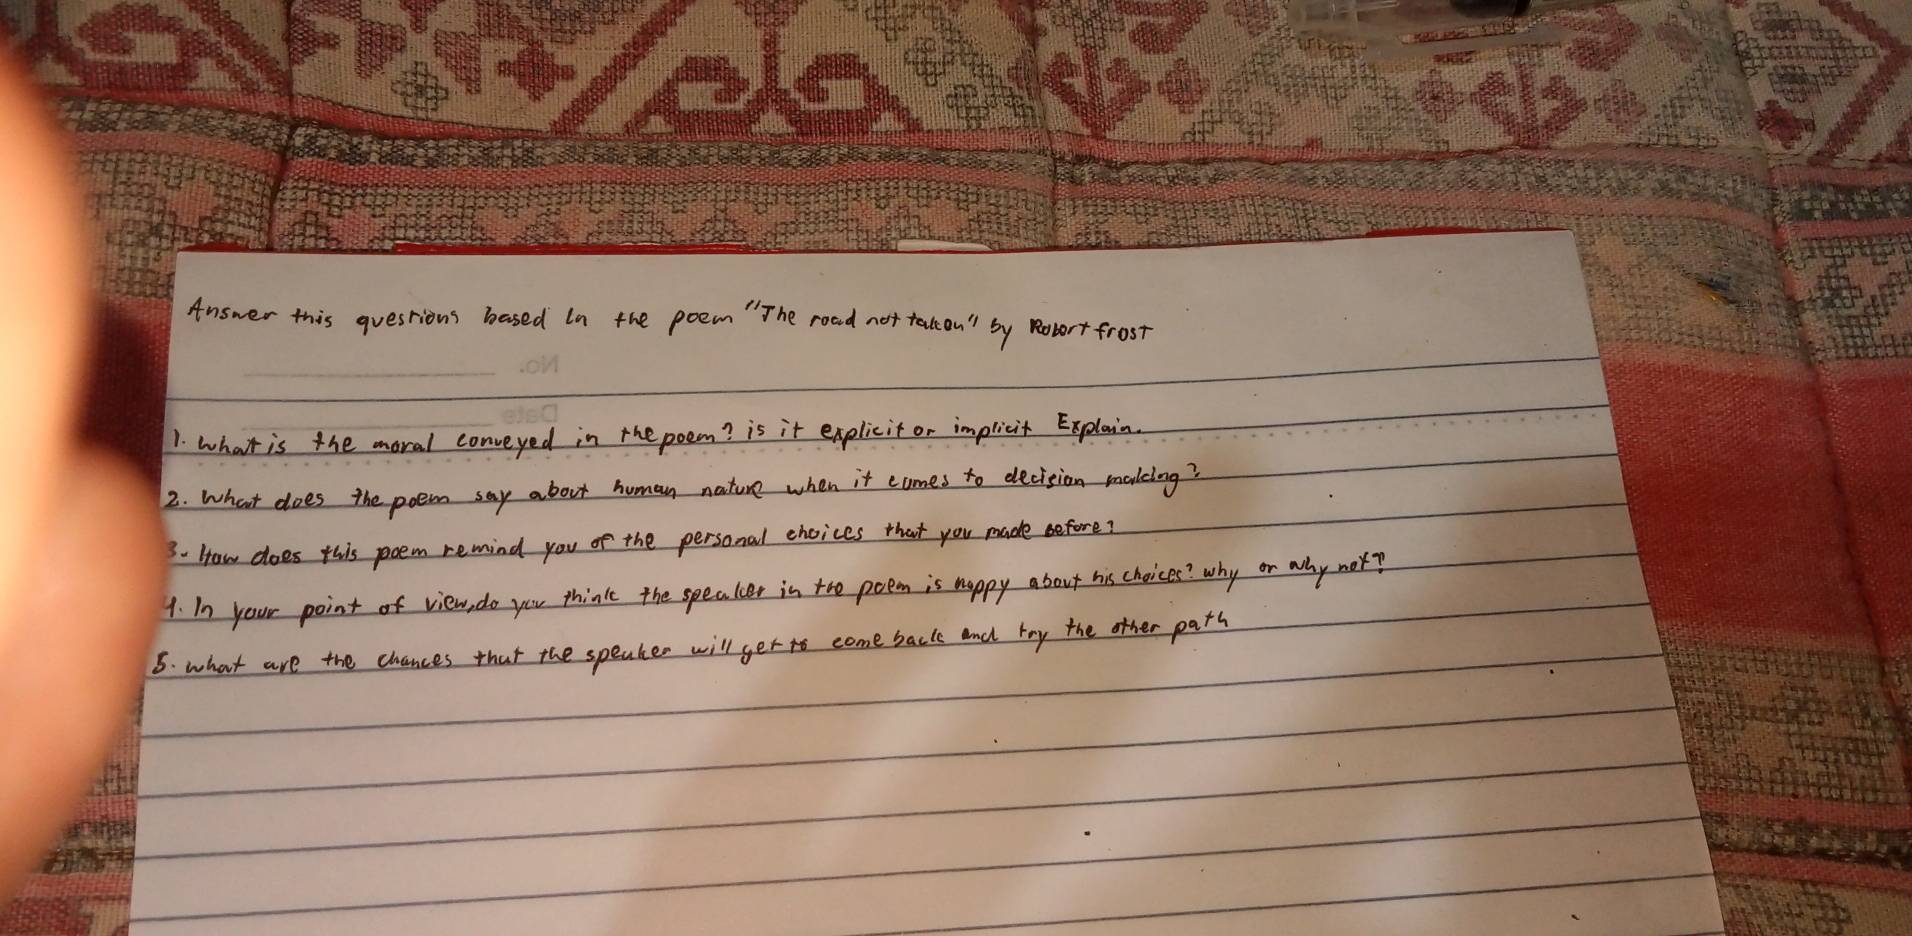 Answer this questions based in the poem "The road not taken" by Robert frost
No.
Date
1. What is the moral conveyed in the poem? is it explicit or implicit Explain.
2. What does the poem say about human nature when it comes to decision making?
3. How does this poem remind you of the personal choices that you made before?
4. In your point of view, do you think the speaker in the poem is happy about his choices? why or why not?
5. what are the chances that the speaker will get to come back and try the other path